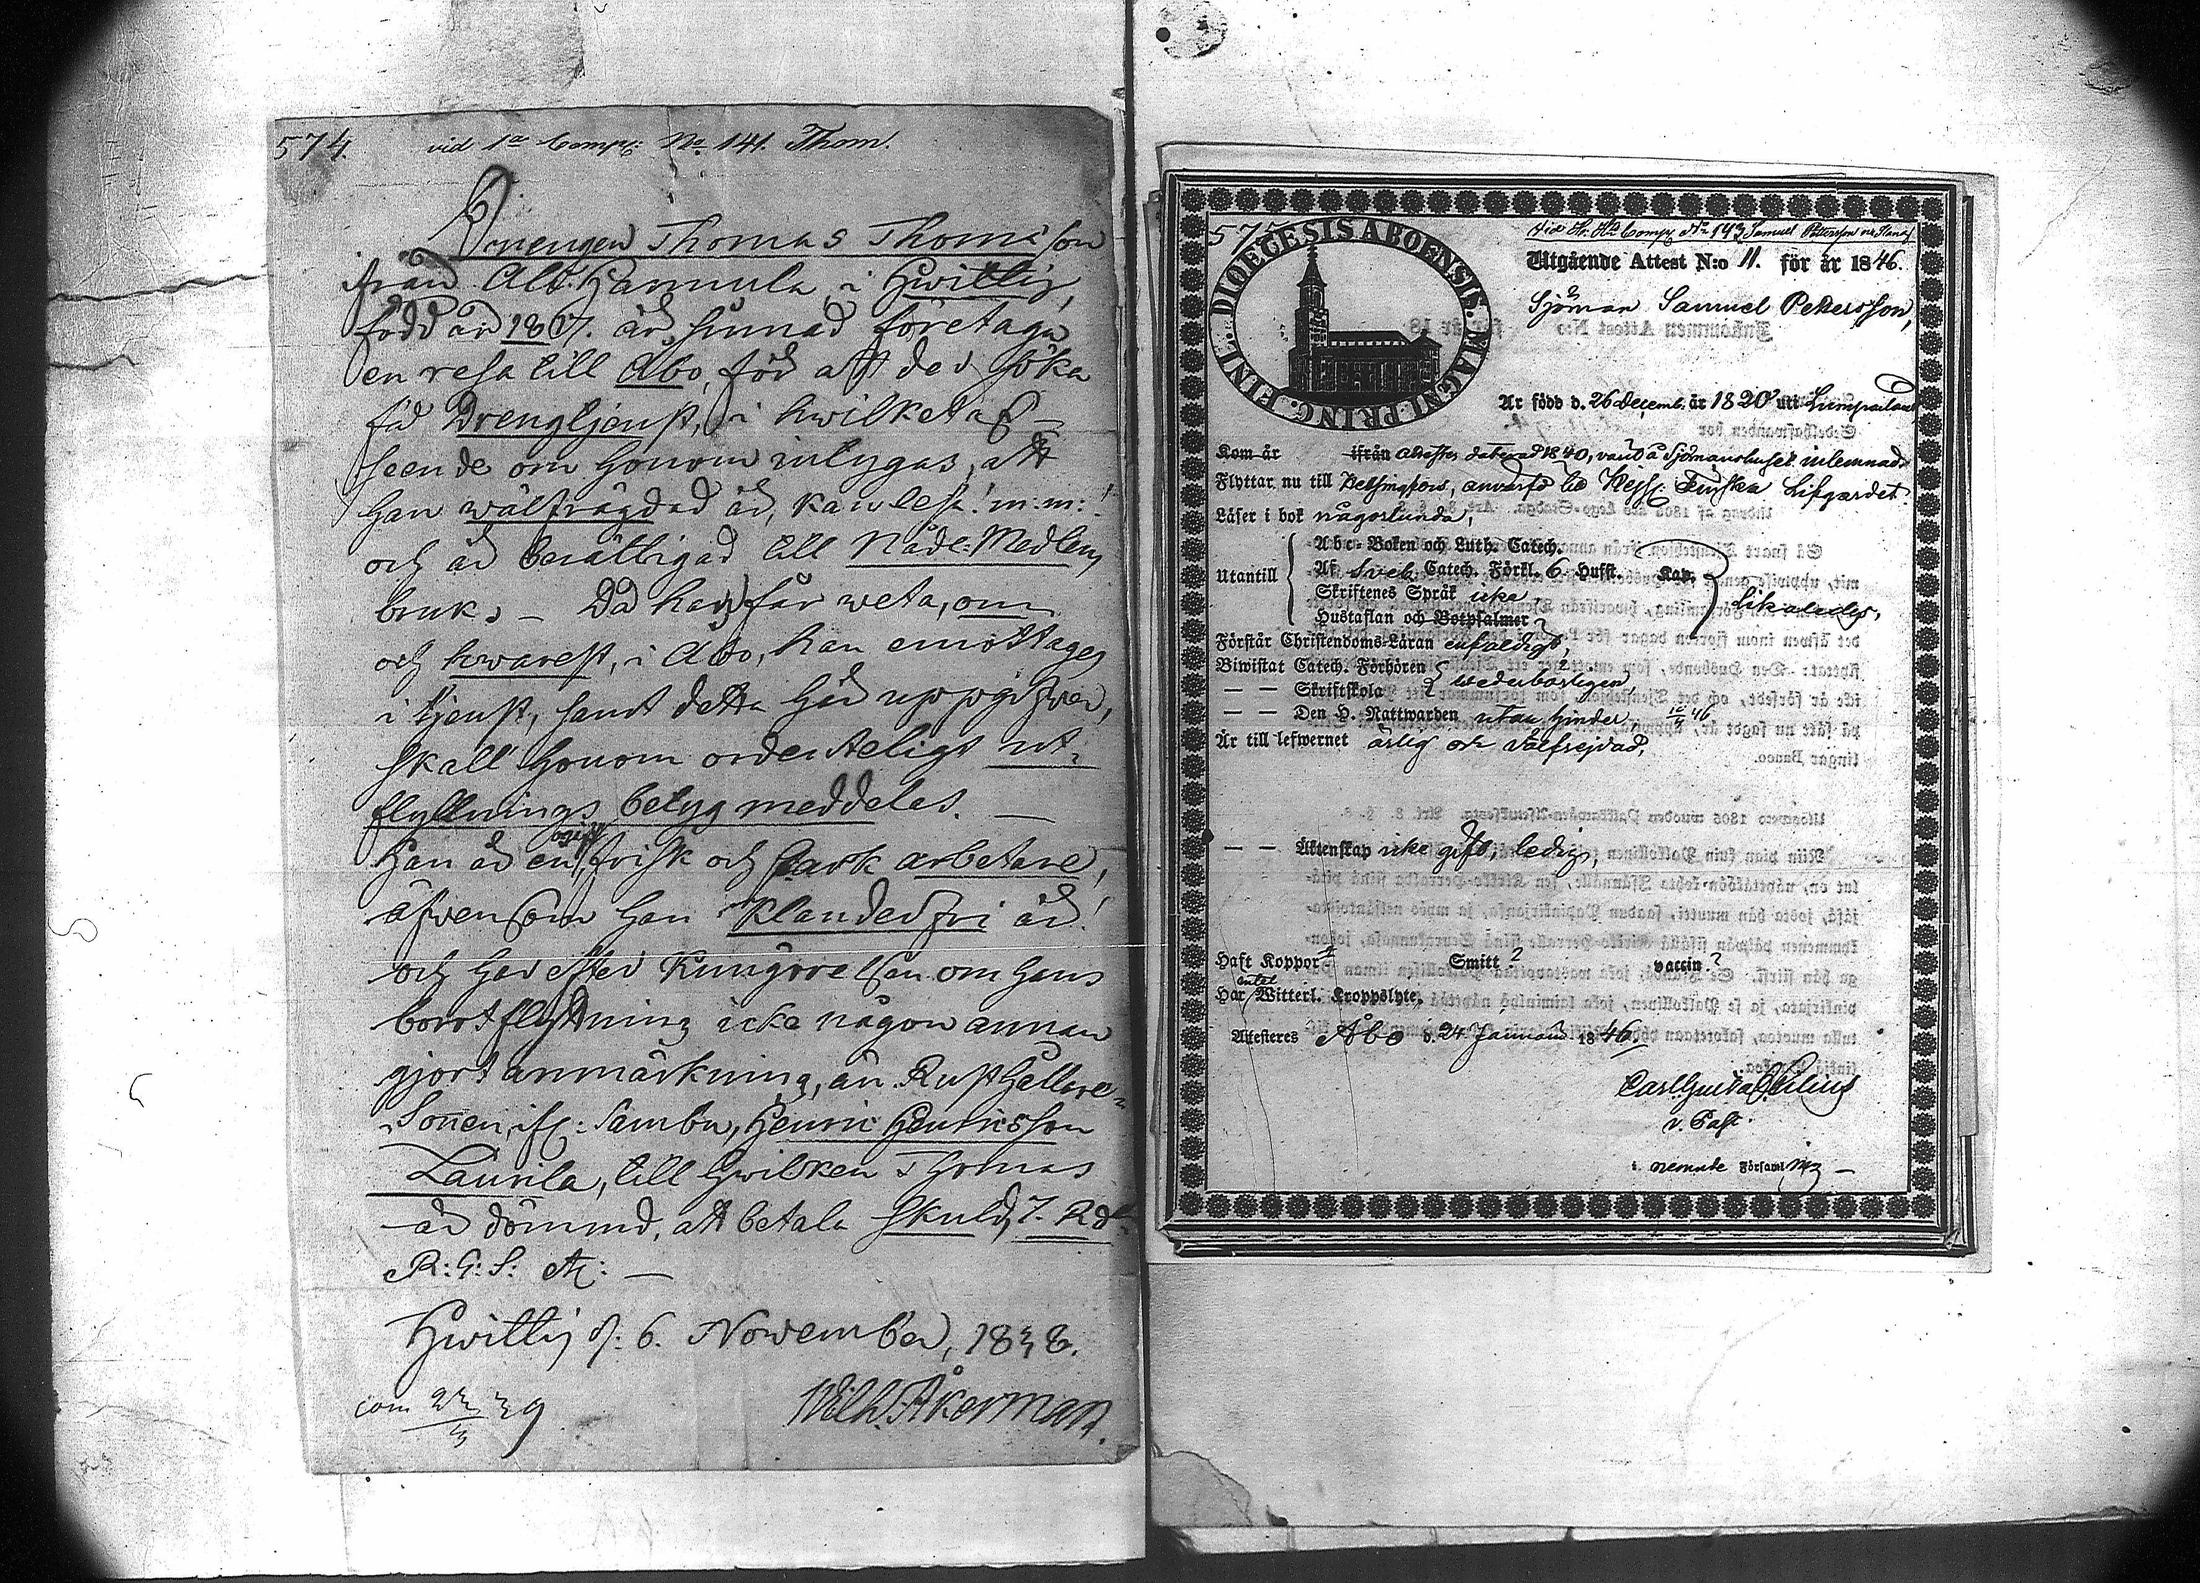 574.
vid 1a Comp: No 141. Thom.
Drengen Thomas Thomasson
från Alb. Hannula, i Hwittis,
född år 1817. är sinnad företaga
en resa till Åbo, för att der söka
få Drengtjenst, i hwilket af-
seende om honom intygas, att
han wälfrägdad är, kan läsa! m:m:!
och är berättigad till Nådi: Medlens
bruk. — Då han får weta, om
och hwarest, i Åbo, han emottages
i tjenst, samt detta här uppgifwer,
skall honom ordenteligt ut-
flyttnings betyg meddelas. —
Han är en, ogift, frisk och stark arbetare,
äfwensom han klanderfri är!
och har efter kungörelsen om hans
bortflyttning icke någon annan
gjort anmärkning, än Rusthållare-
Sonen, ifr: Sambu, Henric Henricsson
Laurila, till hwilken Thomas
är dömmd, att betala skuld, 7. Rdr
R:G:S: etc: —
Hwittis d. 6. November, 1838.
Wilh. Åkerman.
com 23/3 39
575
DIOECESIS ABOENSIS. MAGNI. PRINC. FINL.
Comp No 143 Samuel Pettersson
Utgående Attest N:o 11. för år 1846.
Sjöman Samuel Petersson,
Är född d. 26 Decemb. år 1820 uti Lumparland
Kom år ifrån daterad 1840, vand å Sjömanshuset inlemnad.
Flyttar nu till Helsingfors, anvärfd till Kejs. Finska Lifgardet.
Läser i bok någorlunda,
Utantill
Abc-Boken och Luth. Catech.
Af Sveb. Catech. Förkl. 6 Hufst. Kap.
Skriftenes Språk icke,
Hustaflan och Botpsalmer
Likaledes,
Förstår Christendoms-Läran enfaldigt,
Biwistat Catech. Förhören
— — Skriftskola
wederbörligen,
— — Den H. Nattwarden utan hinder, 46
Är till lefwernet ärlig och välfrejdad,
— — Äktenskap icke gift, ledig,
Haft Koppor? Smitt? vaccin?
Har intet Witterl. Kroppslyte.
Attesteres Åbo d. 24 Januarii 1846
v. Past.
i nemnde Församl ing —